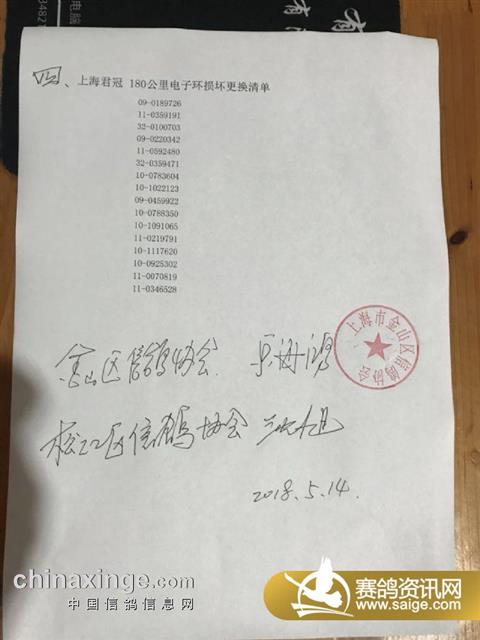 电脑
348271
有
四、上海君冠 180公里电子环损坏更换清单
09-0189726
11-0359191
32-0100703
09-0220342
11-0592480
32-0359471
10-0783604
10-1022123
09-0459922
10-0788350
10-1091065
11-0219791
10-1117620
10-0925302
11-0070819
11-0346528
上海市金山区信鸽协会
金山区信鸽协会
松江区信鸽协会
2018.5.14.
chinaxinge.com
中国信鸽信息网
赛鸽资讯网
www.saige.com